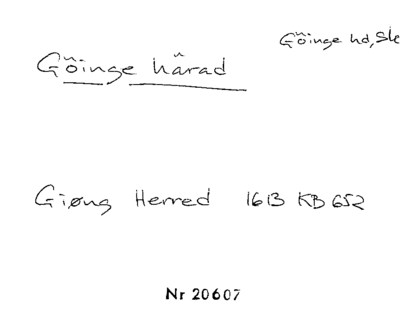 Göinge hd, Sk
Göinge härad
Giøng Herred 1613 KB 652
Nr 20607